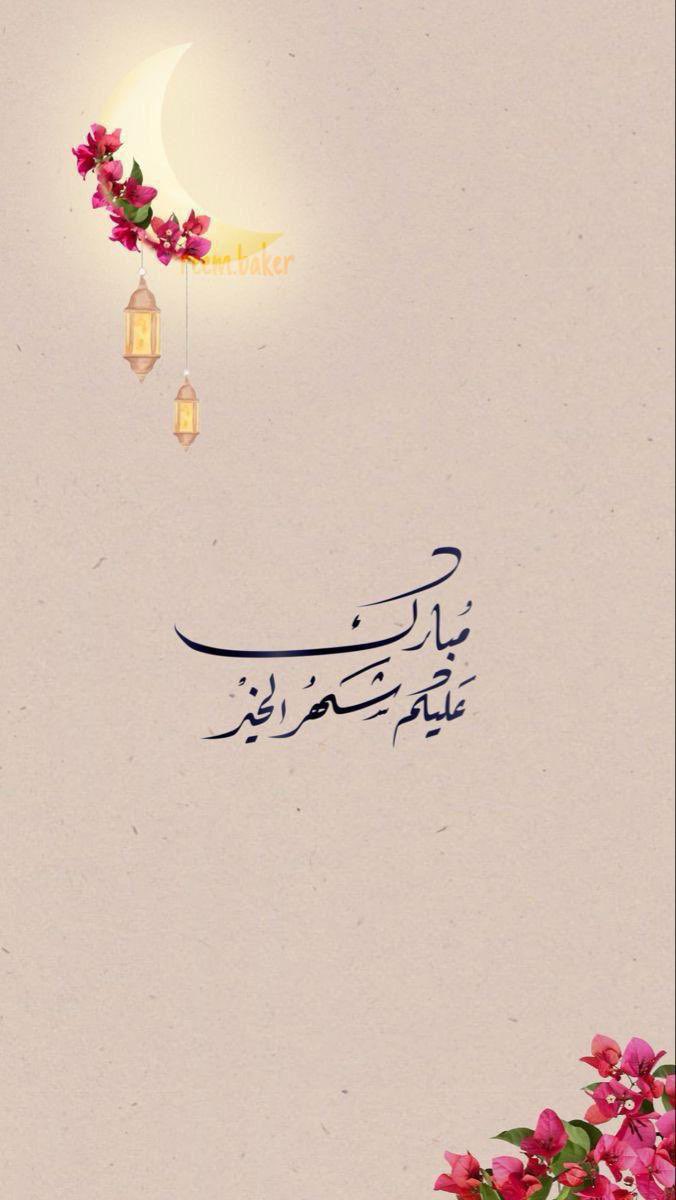 reem.baker
مُبارك
عَليكم شَهرُ الخيْر